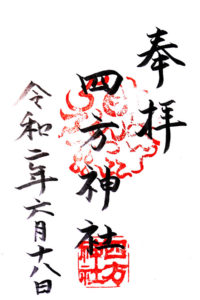 奉拝
四方神社
令和二年六月十八日
四方
神社